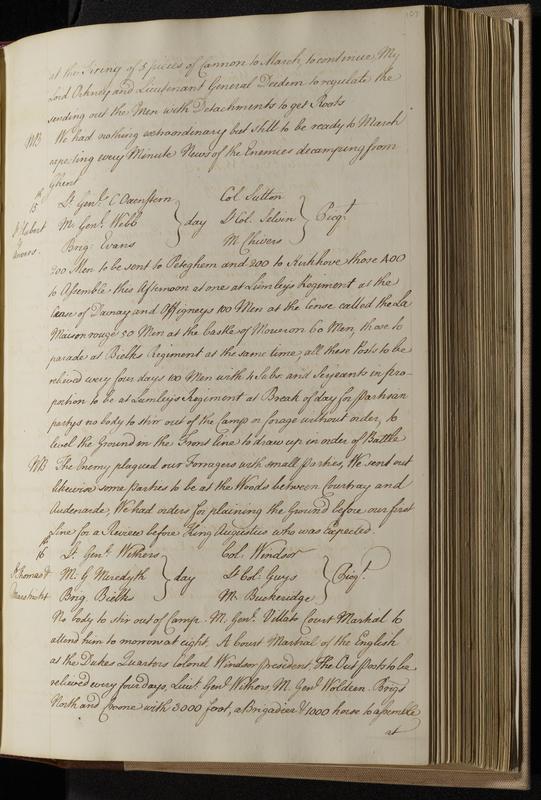 at the Firing of 5 pieces of Cannon to March, to continue, My
Lord Orkney and Lieutenant General Dedem to regulate the
sending out the Men with Detachments to get Roots
NB We had nothing extraordinary but still to be ready to March
expecting every Minute News of the Enemies decamping from
Ghent
15th Lt. Genl. C Oxenstern Col. Sutton
St. Hubert & Mr. Genl. Webb } day Lt Col. Selvin } Picqt.
Anvers. Brig: Evans M. Chivers
200 Men to be sent to Peteghem and 200 to Kirkhove those 400
to Assemble this Afternoon at one at Lumleys Regiment at the
Cense of Daunay and Offigneys 100 Men at the Cense called the La
Maison rouge 50 Men at the Castle of Mouseron 60 Men, those to
parade at Bielks Regiment at the same time, all these Posts to be
relieved every four days 100 Men with 4 Subs. and Serjeants in pro-
portion to be at Lumley's Regiment at Break of day for Partisan
partys no body to stir out of the Camp or forage without order, to
level the Ground in the Front line to draw up in order of Battle
NB The Enemy plagued our Forragers with small Parties, We sent out
likewise some Parties to be at the Woods between Courtray and
Audenarde, We had orders for plaining the Ground before our first
line for a Review before King Augustus who was Expected.
16th Lt. Genl. Withers Col: Windsor
St. Thomas & M: G Meredyth } day Lt Col: Guys } Picqt.
Maestricht Brig. Bielks M: Buckeridge
No body to stir out of Camp. M. Genl. Villats Court Martial to
attend him to morrow at eight, A Court Martial of the English
at the Dukes Quarters Colonel Windsor president, The Out Posts to be
relieved every four days, Lieut. Genl Withers, M. Genl Woldern. Brigs
North and with 3000 foot, a Brigadier & 1000 horse to assemble
at